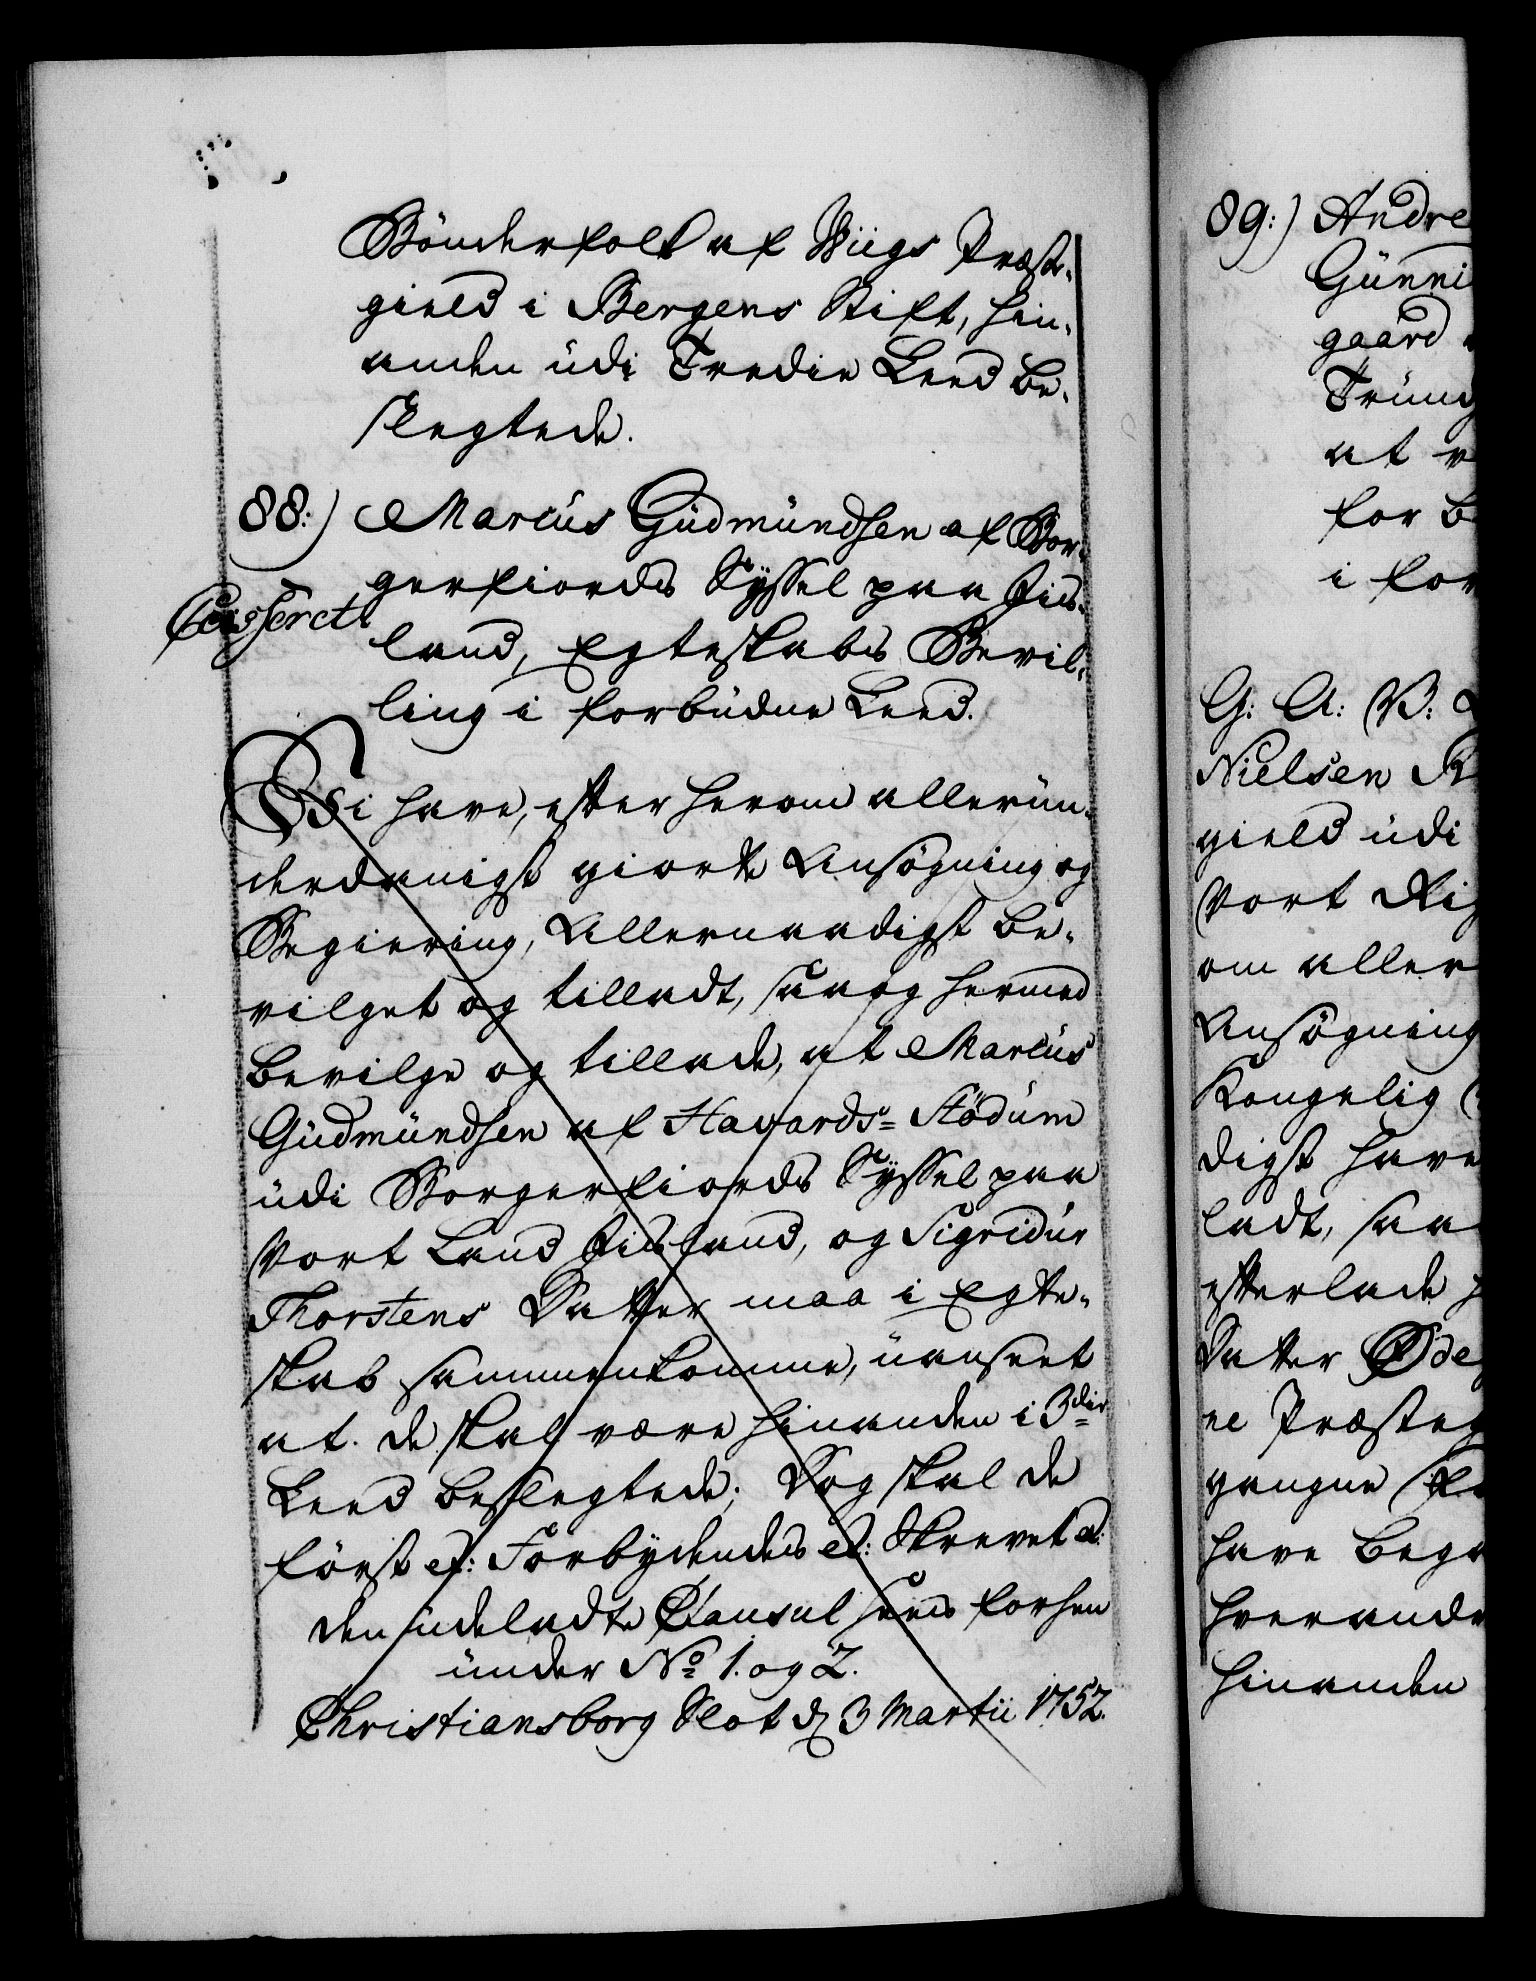 Bönderfolk af Wiigs Præste-
gield i Bergens Stift, hin-
anden üdi Tredie Leed be-
slegtede.
88:) Marcüs Güdmündsen af Bor-
gerfiords Syssel paa Jis-
Casseret
land, Egteskabs Bevil-
ling i forbüdne Leed.
Vi have, efter herom allerün-
derdanigst giorte Ansögning og
Begiering, Allernaadigst be-
vilget og tilladt, saa og hermed
bevilge og tillade, at Marcüs
Güdmündsen af Havards-Stödüm
üdi Borgerfiords Syssel paa
Vort Land Jisland, og Sigridür
Thorstens Datter maa i Egte-
skab sammenkomme, üanseet
at de skal være hinanden i 3die
Leed beslegtede; Dog skal de
först etc: Forbydendes etc: Skrevet etc:
den üdeladte Clausul sees forhen
ünder No 1. og 2.
Christiansborg Slot d 3 Martii 1752.
89:) Andre
Günni
gaard
Tründ
at
for be
i for
G: A: V:
Nielsen
gield üdi
Vort Rig
om aller
Ansögning
Kongelig
digst have
ladt, saa
efterlade
Datter Øde
ne Præsteg
gangne
have beg
hverandr
hinanden